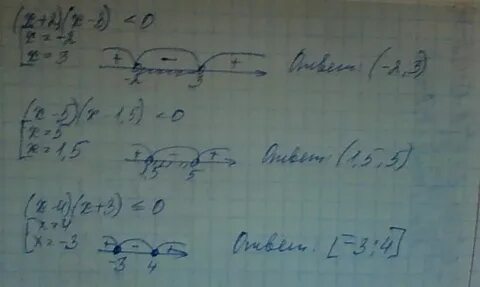 (x+2)(x-3) <0
x=-2
x=3
+ - +
-2 3
Ответ: (-2,3)
(x-5)(x-1,5) <0
x=5
x=1,5
+ - +
1,5 5
Ответ: (1,5;5)
(x-4)(x+3) ≤0
x=4
x=-3
+ - +
-3 4
Ответ: [-3;4]